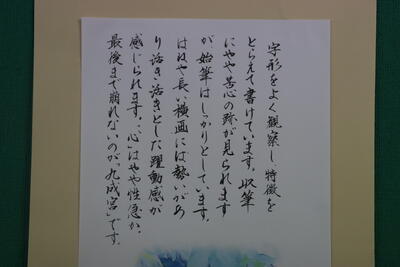 字形をよく観察し、特徴を
とらえて書けています。収筆
にやや苦心の跡が見られます
が、始筆はしっかりとしています。
はねや長い横画には勢いがあ
り活き活きとした躍動感が
感じられます。「心」はやや性急か。
最後まで崩れないのが「九成宮」です。